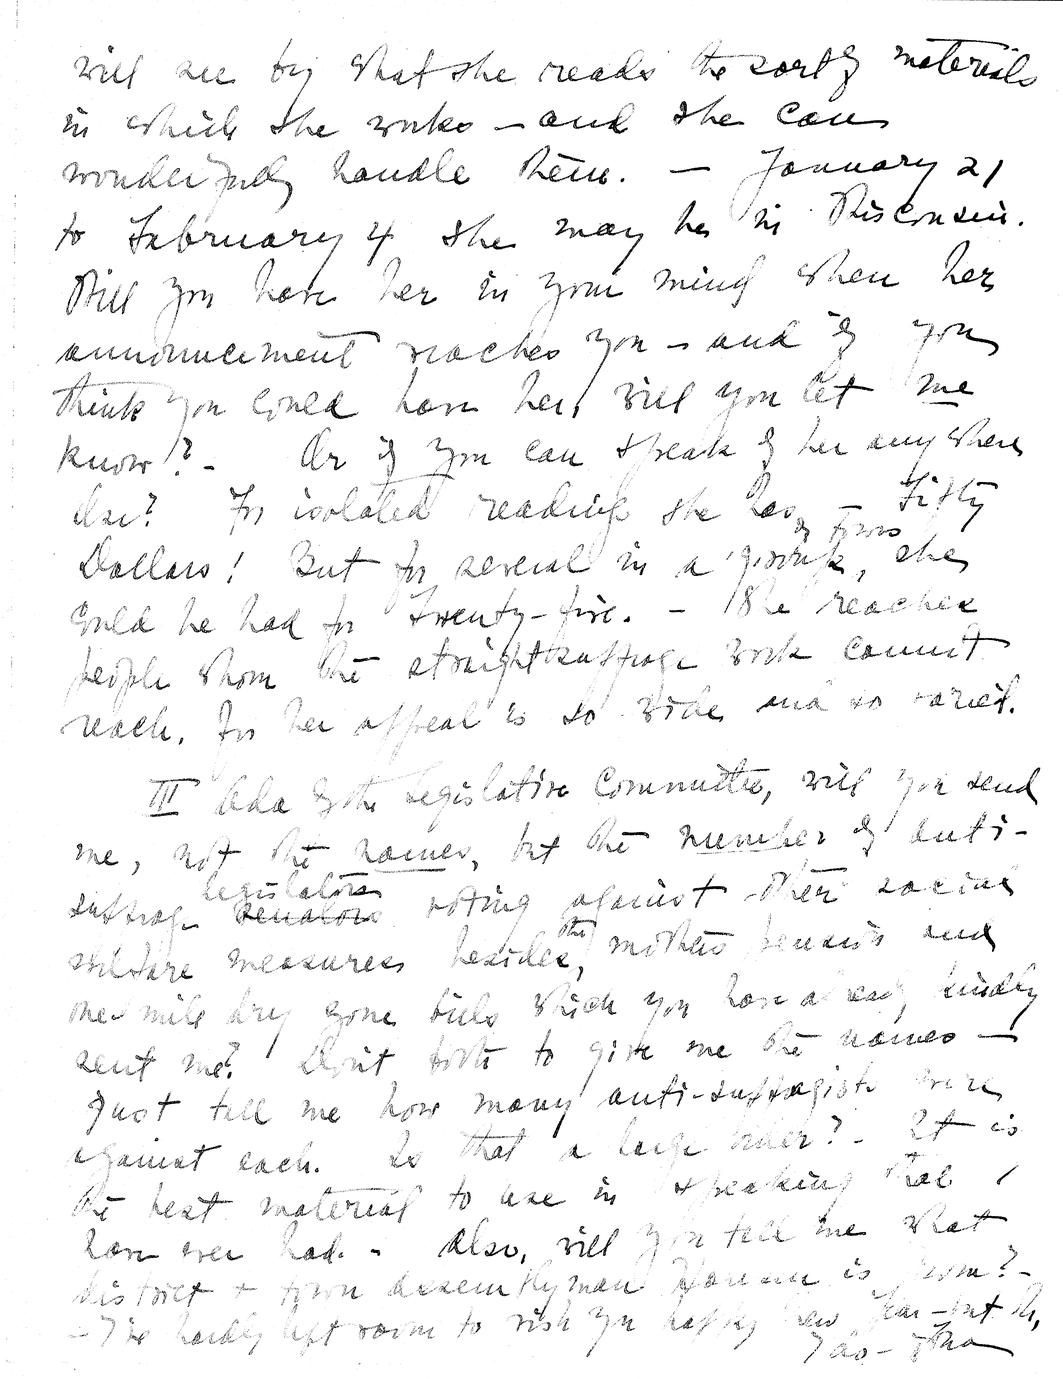 will see by what she reads the sort of materials
in which she works – and she can
wonderfully handle them. – January 21
to February 4 she may be in Wisconsin.
Will you have her in your mind when her
announcement reaches you – and if you
think you could have her, will you let me
know? – Or if you can speak of her anywhere
else? For isolated readings she has – Fifty
Dollars! But for several in a group of towns, she
could be had for twenty-five. – She reaches
people whom the straight suffrage work cannot
reach, for her appeal is so wide and so varied.
III Ada of the Legislative Committee, will you send
me, not the names, but the number of anti-
suffrage senators legislators voting against other social
welfare measures besides the mothers pensions and
one-mile dry zone bills which you have already kindly
sent me? Don't bother to give me the names –
Just tell me how many anti-suffragists were
against each. Is that a large order? – It is
the best material to use in speaking that I
have ever had. – Also, will you tell me what
district + town assemblyman is from? –
– I've hardly left room to wish you happy New Year – but I do,